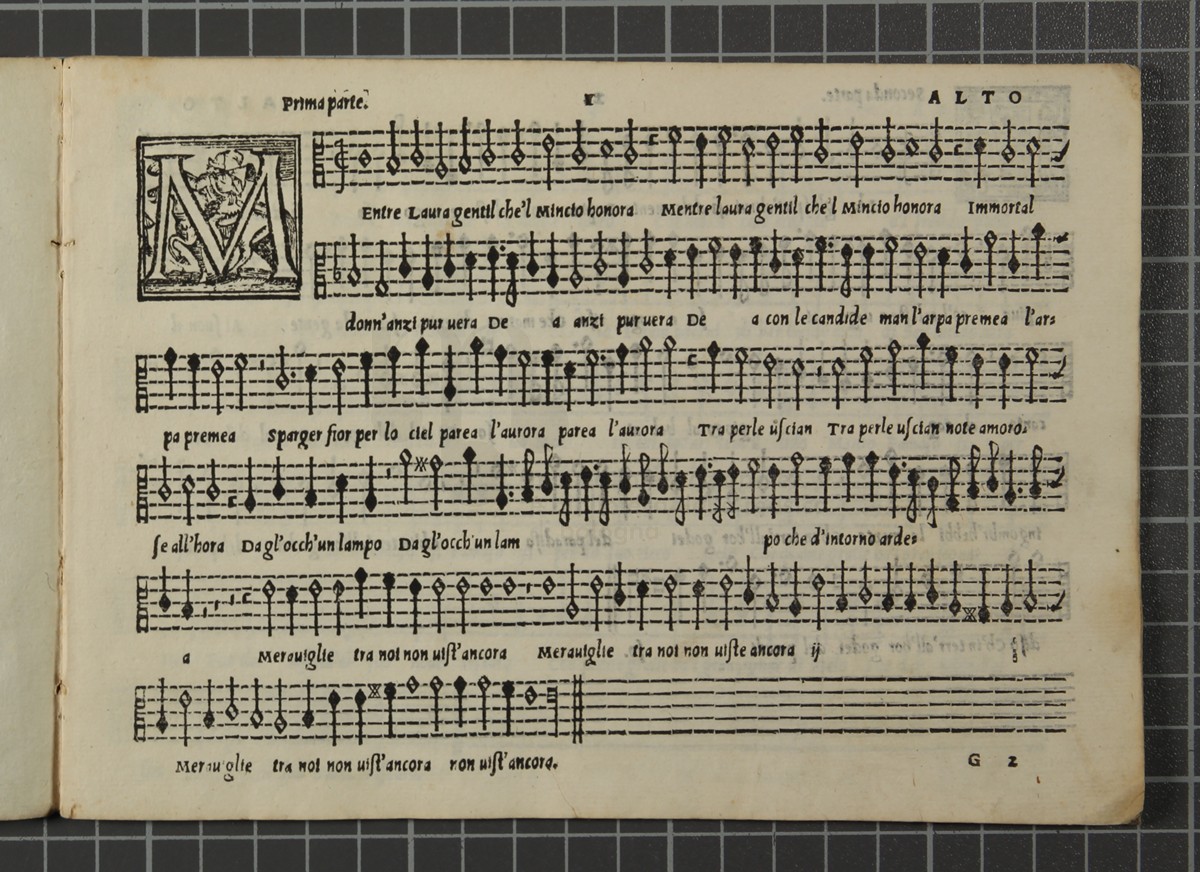 Prima parte. I ALTO
M
Entre Laura gentil che'l Mincio honora Mentre laura gentil che'l Mincio honora Immortal
donn'anzi pur uera De a anzi pur uera De a con le candide man l'arpa premea l'ar=
pa premea Sparger fior per lo ciel parea l'aurora parea l'aurora Tra perle uscian Tra perle uscian note amoro=
se all'hora Da gl'occh'un lampo Da gl'occh'un lam po che d'intorno arde=
a Merauiglie tra noi non uist'ancora Merauiglie tra noi non uiste ancora ij
Merauiglie tra noi non uist'ancora non uist'ancora.
G 2